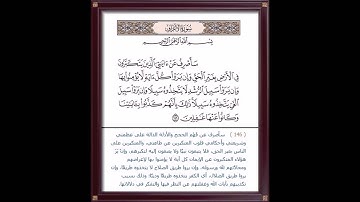 سورة الأعراف
بسم الله الرحمن الرحيم
سَأَصْرِفُ عَنْ ءَايَٰتِيَ الَّذِينَ يَتَكَبَّرُونَ
فِي الْأَرْضِ بِغَيْرِ الْحَقِّ وَإِن يَرَوْا كُلَّ ءَايَةٍ لَّا يُؤْمِنُوا بِهَا
وَإِن يَرَوْا سَبِيلَ الرُّشْدِ لَا يَتَّخِذُوهُ سَبِيلًا وَإِن يَرَوْا سَبِيلَ
الْغَيِّ يَتَّخِذُوهُ سَبِيلًا ذَٰلِكَ بِأَنَّهُمْ كَذَّبُوا بِـَٔايَٰتِنَا
وَكَانُوا عَنْهَا غَٰفِلِينَ
(146) سأصرف عن فهم الحجج والأدلة الدالة على عظمتي
وشريعتي وأحكامي قلوب المتكبرين عن طاعتي، والمتكبرين على
الناس بغير الحق، فلا يتبعون نبيًا ولا يصغون إليه لتكبرهم، وإن يَرَ
هؤلاء المتكبرون عن الإيمان كل آية لا يؤمنوا بها لإعراضهم
ومحادَّتهم لله ورسوله، وإن يروا طريق الصلاح لا يتخذوه طريقًا، وإن
يروا طريق الضلال، أي الكفر يتخذوه طريقًا ودينًا؛ وذلك بسبب
تكذيبهم بآيات الله وغفلتهم عن النظر فيها والتفكر في دلالاتها.